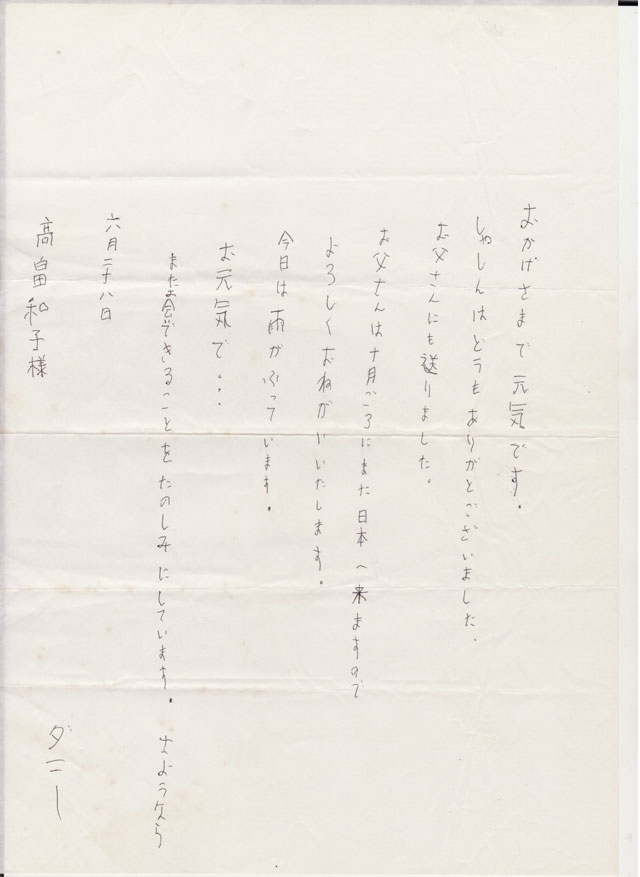 おかげさまで元気です.
しゃしんはどうもありがとございました.
お父さんにも送りました。
お父さんは十月ごろにまた日本へ来ますので
よろしくおねがいいたします。
今日は雨がふっています.
お元気で...
またお会できることをたのしみにしています。 さようなら
六月二十八日
高畠和子様
ダニー